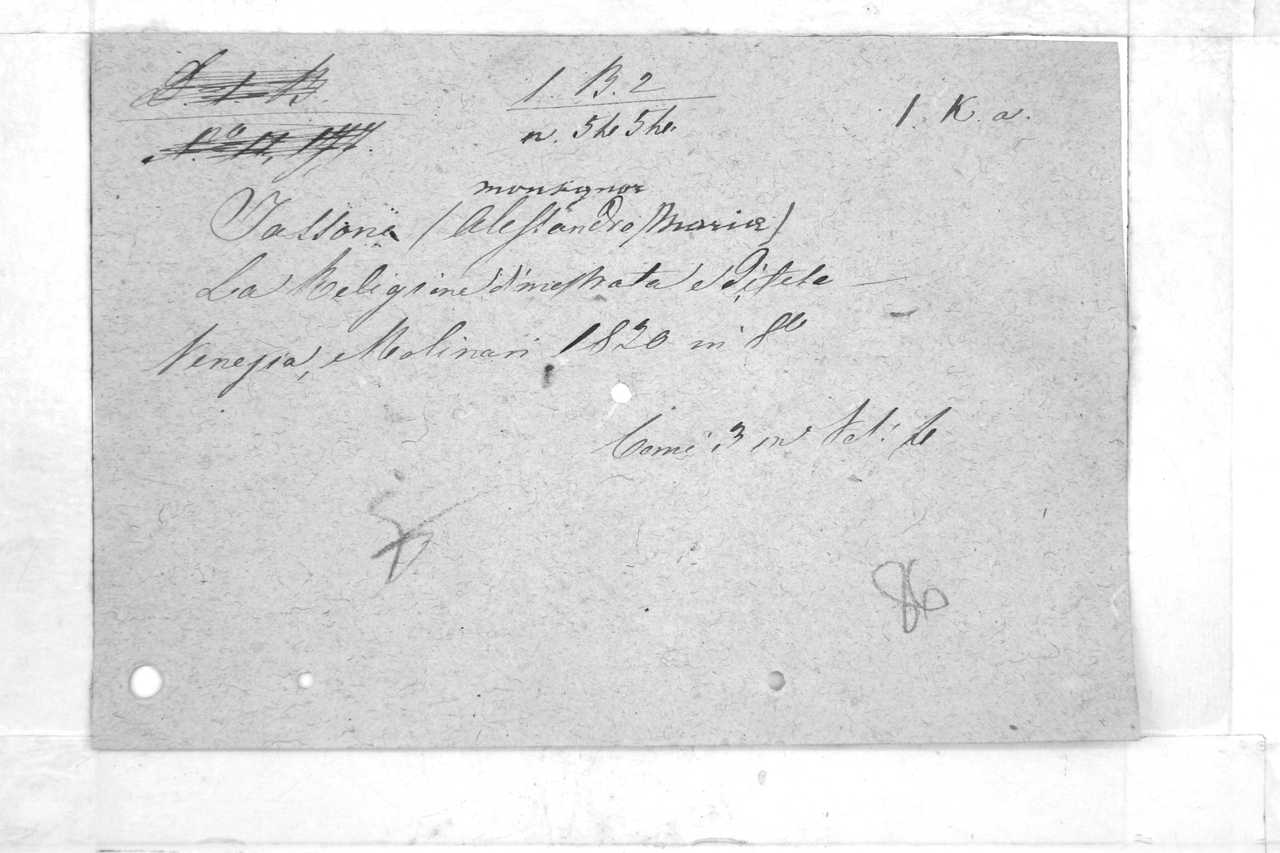 1 B. 2
1. K. a.
monsignor
Tassoni (Alessandro Maria)
La Religione dimostrata e Difesa
Venezia, Molinari 1830 in 8º
Tomi 3 in Vol.